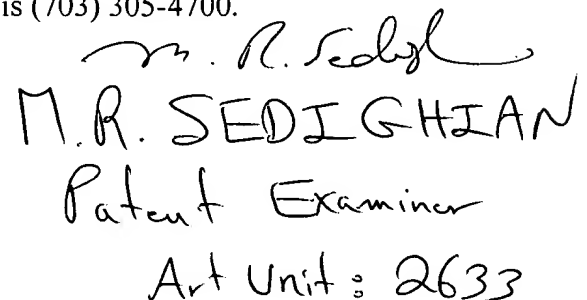 is (703) 305-4700.
M. R. Sedigh
M.R. SEDIGHIAN
Patent Examiner
Art Unit: 2633